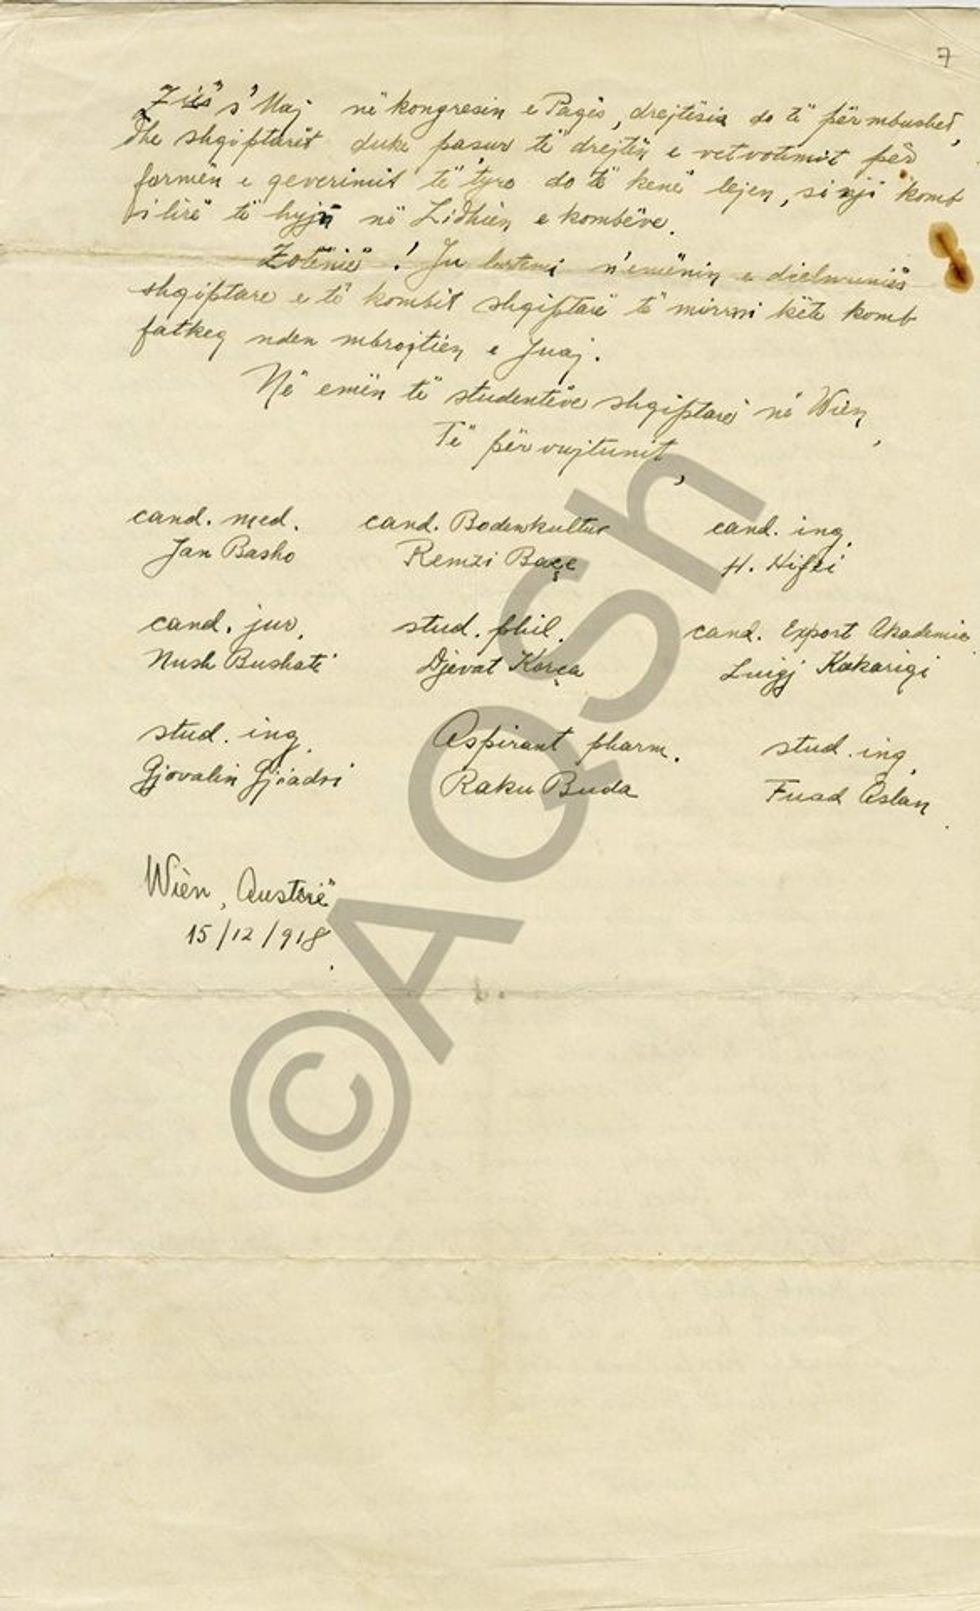 7
Ziës s'Uaj në kongresin e Pagës, drejtësia do të përmbushet,
dhe shqiptarët duke pasur të drejtën e vetvotimit për
formën e geverimit të tyre do të kenë lejen, si nji komb
i lirë të hyjn në Lidhien e kombëve.
Zotënië! Ju lutemi n'emënin e dielmuniës
shqiptare e të kombit shqiptarë të mirrni këte komb
fatkeq nden mbrojtiën e Juaj.
Në emën të studentëve shqiptarë në Wien,
Të përvujtunit,
cand. med. cand. Bodenkultur cand. ing.
Jan Basho Remzi Baçe H.
cand. jur. stud. phil. cand. Export Akademie
Nush Bushati Djevat Korça Luigj Kakariqi
stud. ing. Aspirant pharm. stud. ing.
Gjovalin Gjoadri Raku Buda Fuad Aslan.
Wien, Austrië
15/12/918.
©AQSh